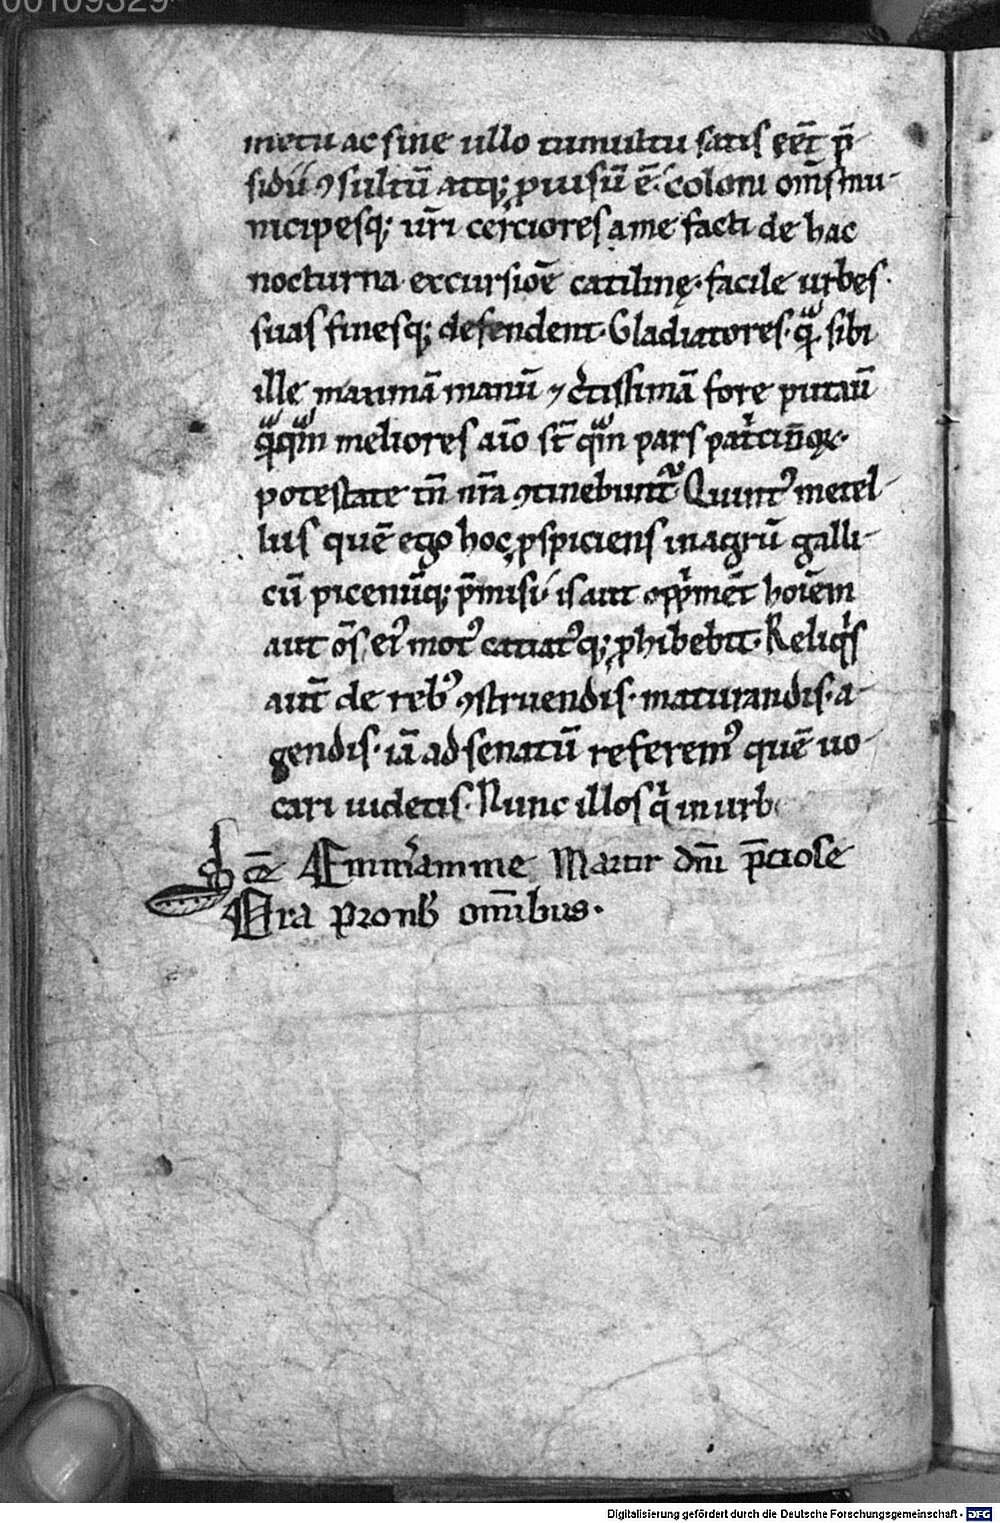 00109329
metu ac sine ullo tumultu satis eēt p̄-
sidii ꝯsultū atq; ꝓuisū ē. coloni om̄s mu-
nicipesq; ur̄i cerciores a me facti de hac
nocturna excursiōe catiline· facile urbes·
suas finesq; defendent· Gladiatores· q̄ sibi
ille maximā manū ⁊ c̓tissimā fore putau̅
q̄q̄m meliores aīo st̄ q̄m pars patricin̄oꝝ·
potestate tn̄ nr̄a ꝯtinebunt᷑· Quintꝰ metel-
lus quē ego hoc ꝓspiciens in agrū galli-
cū picenūq; p̄misi· is aut opp̓met hoiēm
aut om̄s eiꝰ motꝰ  ꝓhibebit· Reliqͥs
aut̄ de rebꝰ ꝯstruendis· maturandis· a-
gendis· iā ad senatū referemꝰ quē uo-
cari uidetis· Nunc illos qͥ in urb
Sc̄e Emm̓amme Martir dn̄i p̄ciose
Ora pro nob̄ om̄ibus·
Digitalisierung gefördert durch die Deutsche Forschungsgemeinschaft - DFG